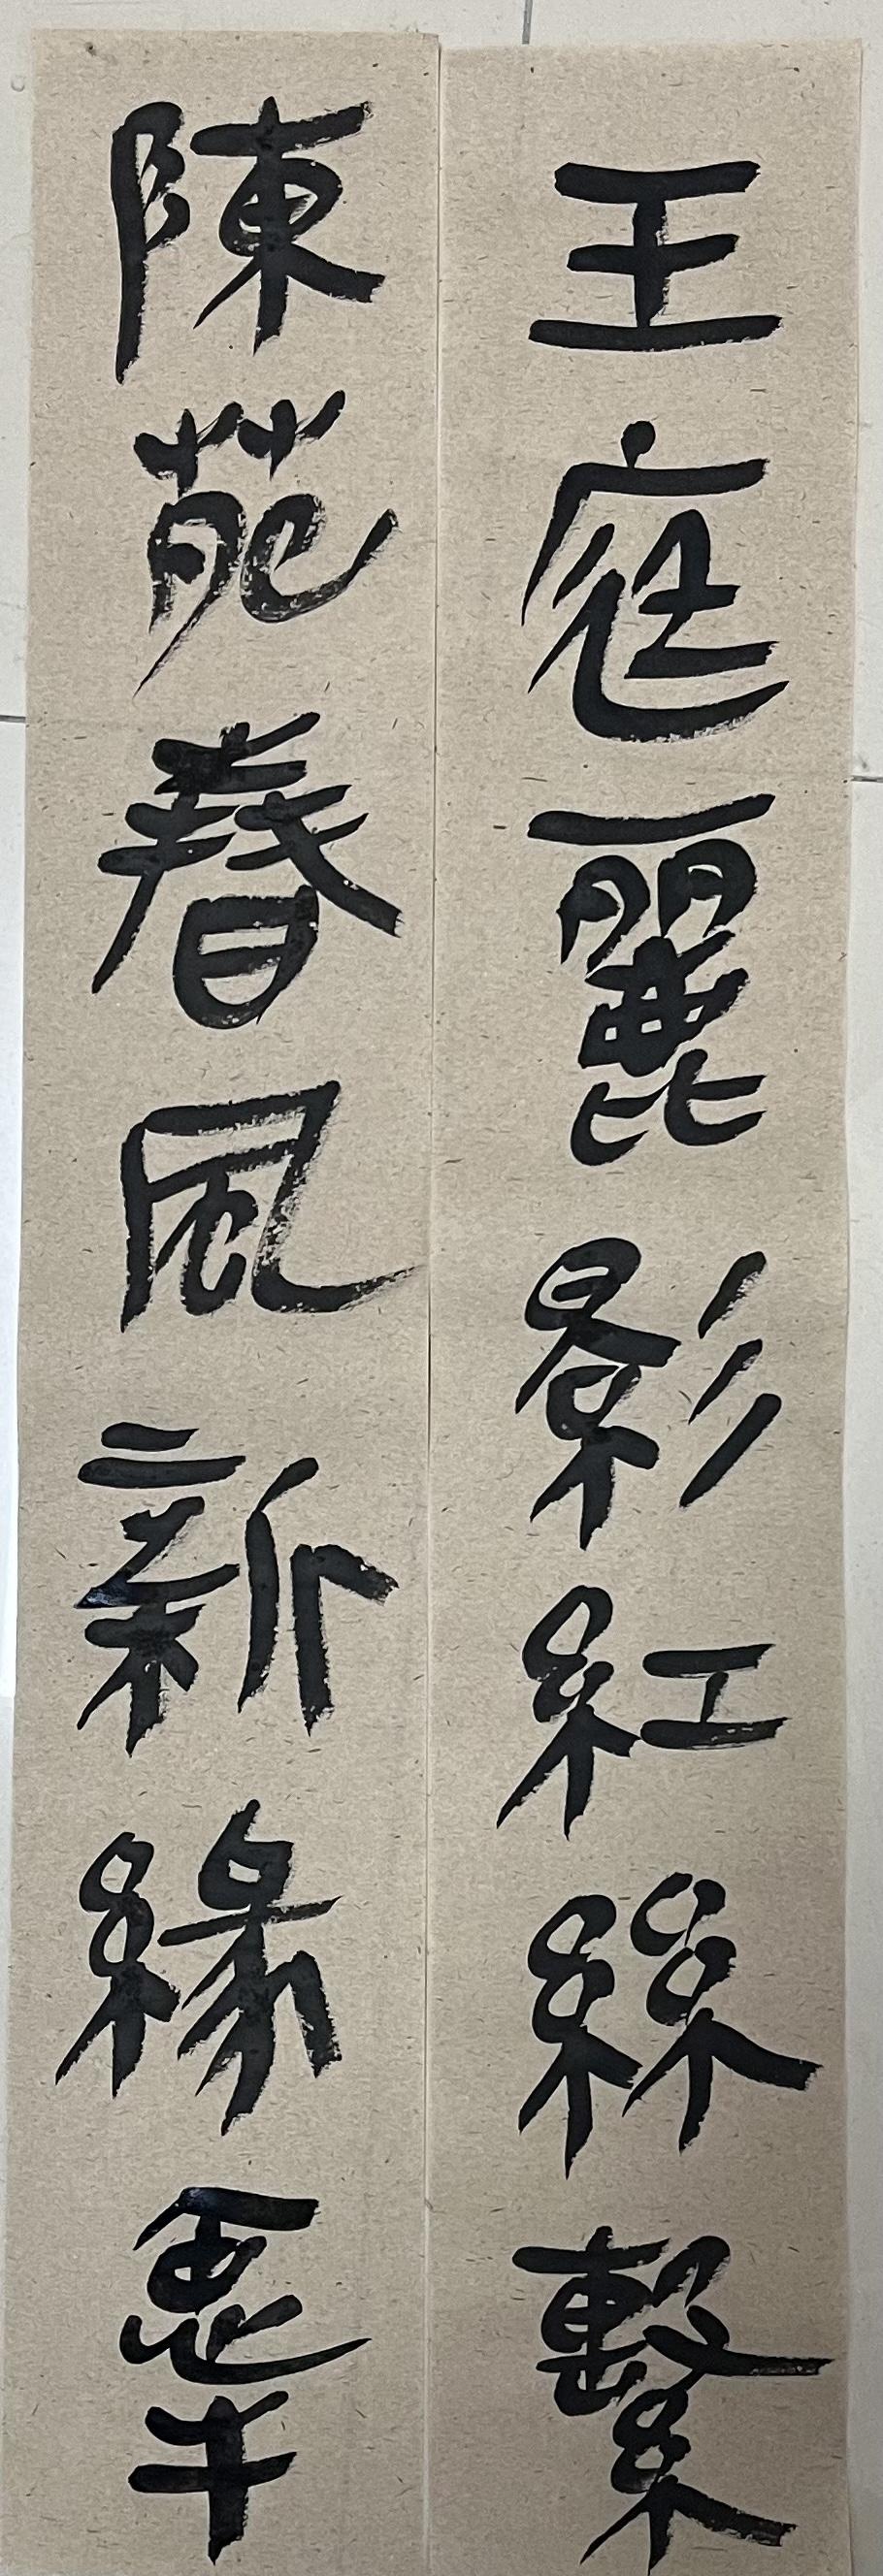 王庭麗影紅絲繫
陳苑春風新緣牽